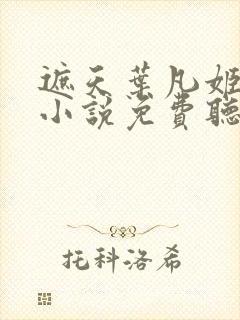 遮天葉凡姬
小說免費聽
托科洛希